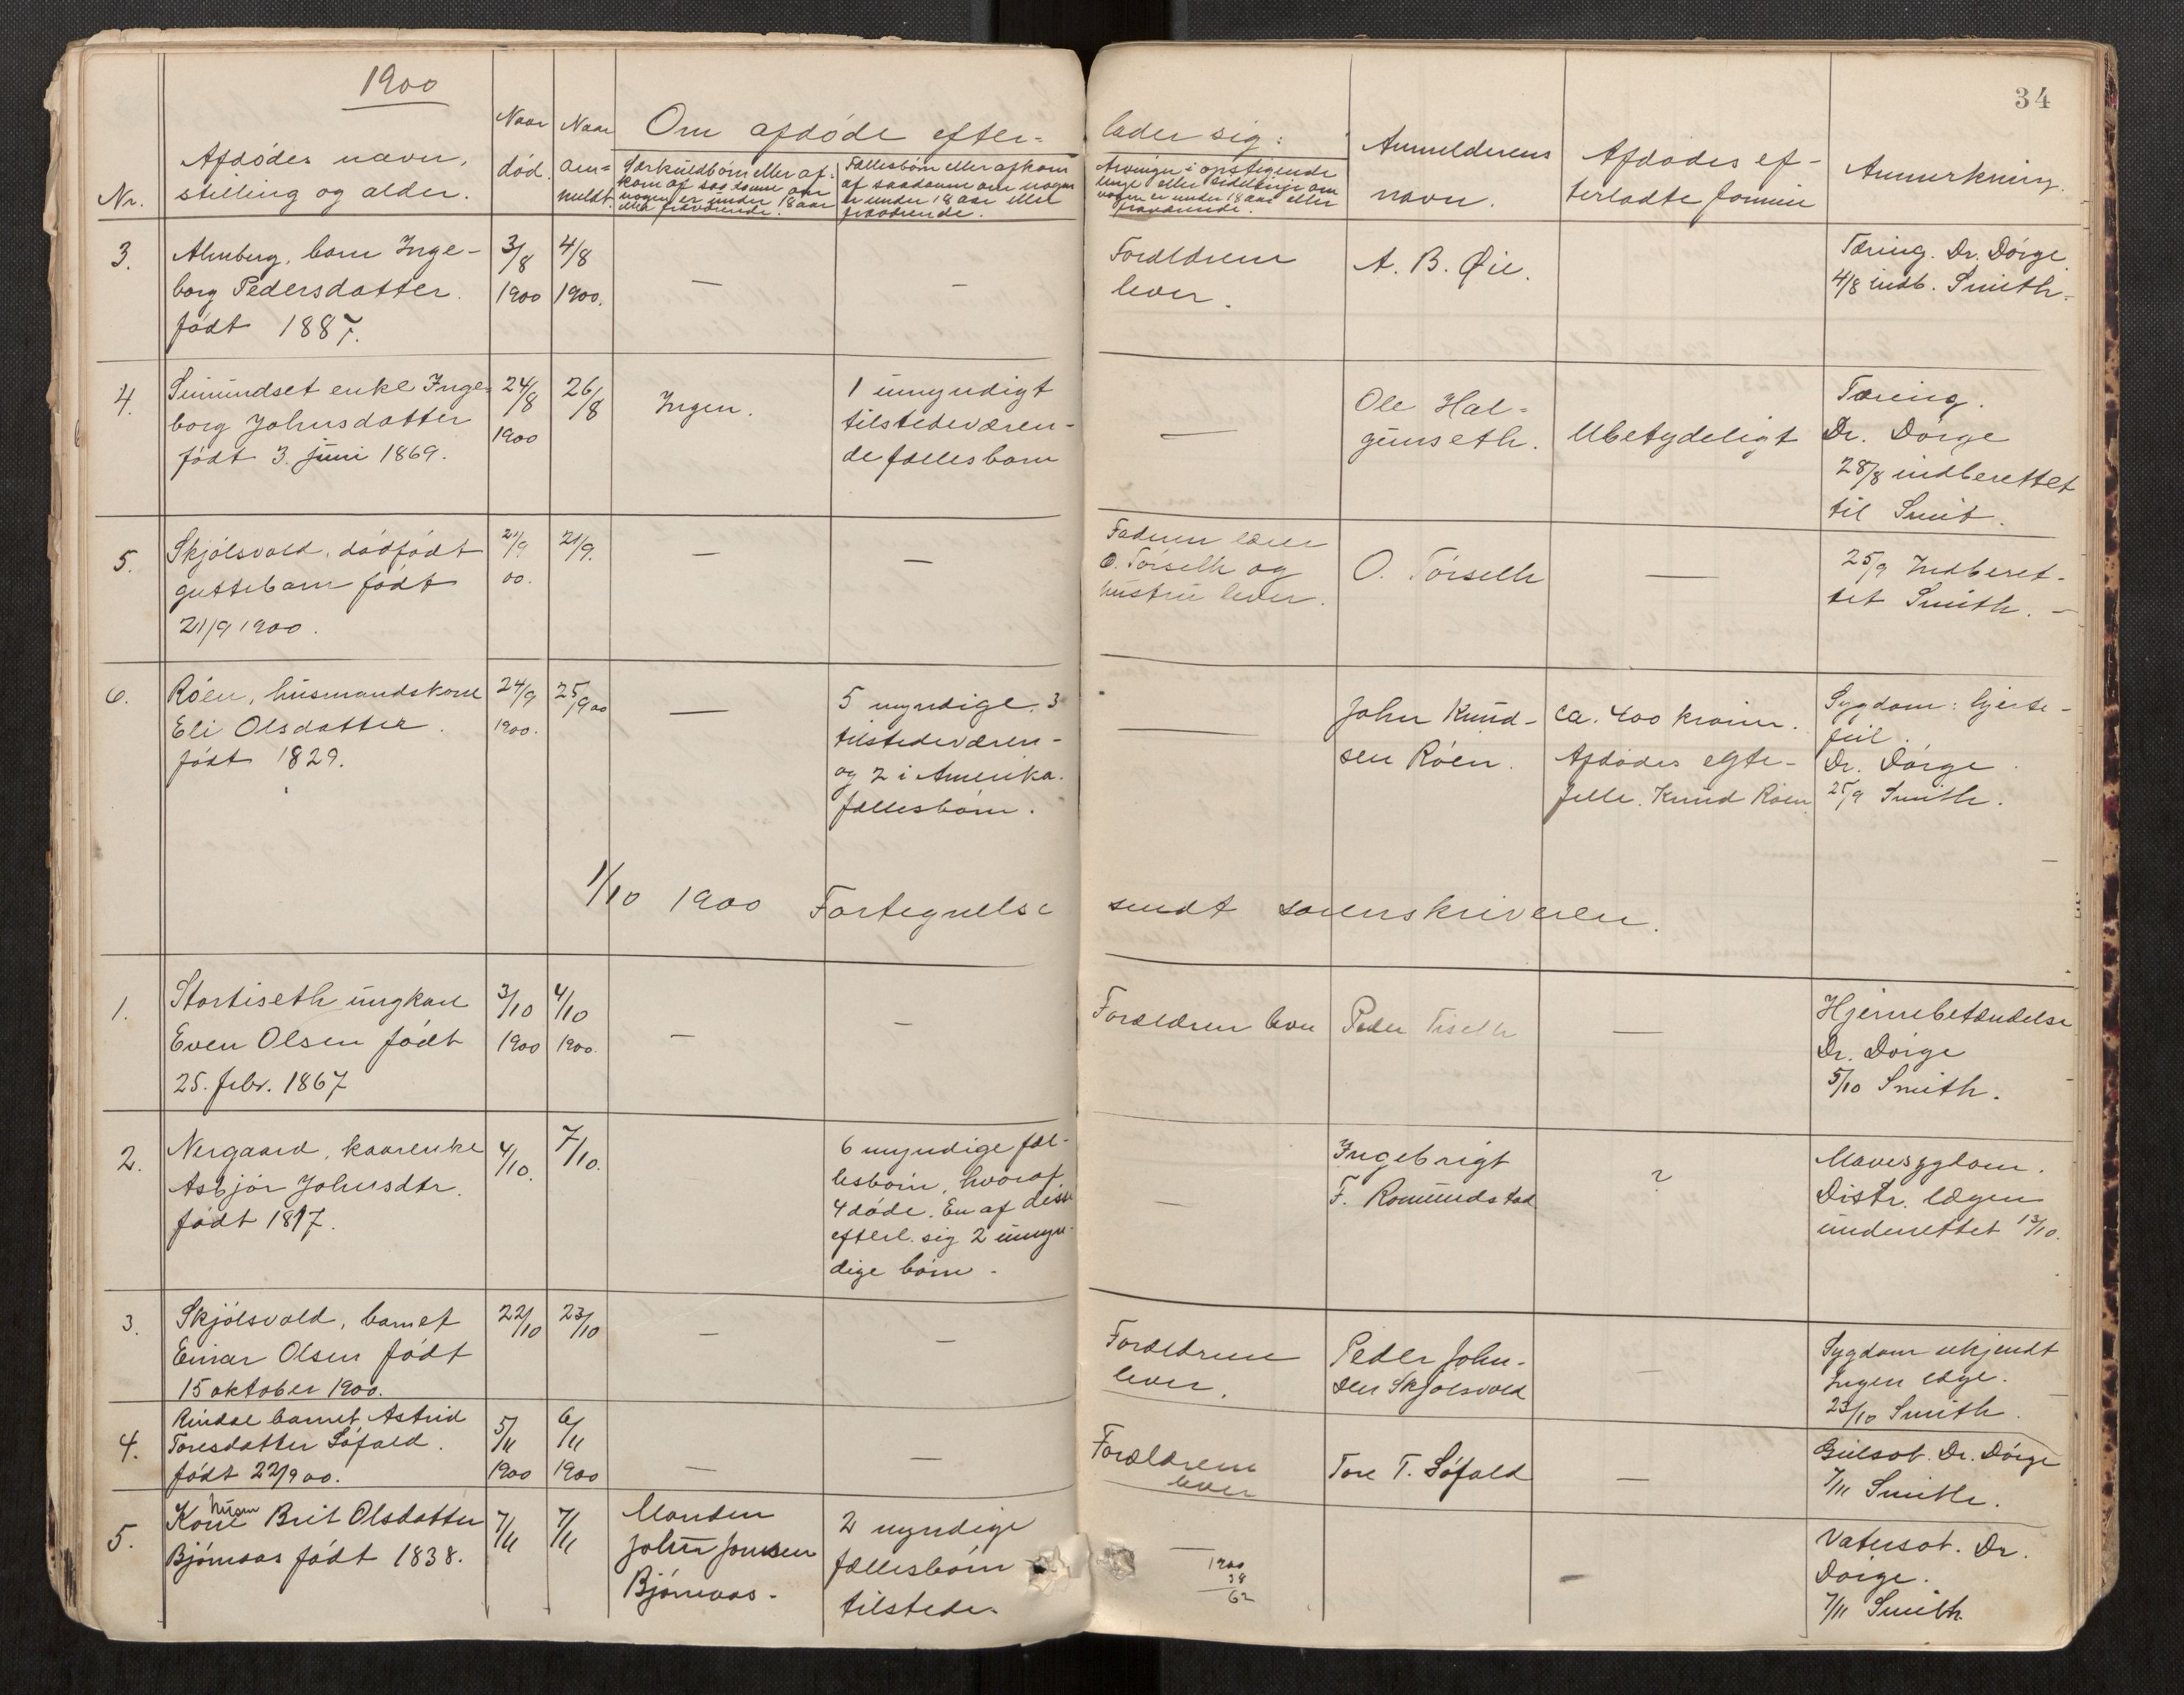 1900
34
Nr.
Afdødes navn,
stilling og alder.
Naar
død.
Naar
an=
meldt.
Om afdøde efter=
lader sig:
Særkuldbørn eller af-
kom af saadanne om
nogen er under 18 aar
eller fraværende.
Fællesbørn eller afkom
af saadanne om nogen
er under 18 aar eller
fraværende.
Arvinger i opstigende
linje eller sidelinje om
nogen er under 18 aar eller
fraværende.
Anmelderens
navn.
Afdødes ef-
terladte formue
Anmerkning.
3.
Almberg, barn Inge-
borg Pedersdatter.
født 1887.
3/8
1900
4/8
1900.
—
—
Forældrene
lever.
A. B. Øie.
Tæring. Dr. Dørge.
4/8 indb. Smith.
4.
Simundset enke Inge-
borg Johnsdatter
født 3. juni 1869.
24/8
1900
26/8
Ingen.
1 umyndigt
tilstedeværen-
de fællesbarn
—
Ole Hal-
gunseth.
Ubetydeligt
Tæring.
Dr. Dørge
28/8 indberettet
til Smit.
5.
Skjølsvold, dødfødt
guttebarn født
21/9 1900.
21/9
00.
21/9.
—
—
Faderen
O. Tørseth og
hustru lever.
O. Tørseth
—
25/9 Indberet-
tet Smith. -
6.
Røen, husmandskone
Eli Olsdatter.
født 1829.
24/9
1900.
25/9 00
—
5 myndige, 3
tilstedeværen-
og 2 i Amerika.
fællesbørn.
—
John Knud-
sen Røen.
ca. 400 kroner.
Afdødes egte-
felle. Knud Røen
Sygdom: hjerte-
feil.
Dr. Dørge.
25/9 Smith.
1/10 1900 Fortegnelse sendt sorenskriveren.
1.
Stortiseth ungkarl
Even Olsen født
25. febr. 1867
3/10
1900
4/10
1900.
—
—
Forældrene lever
Peder Tiseth
—
Hjernebetændelse
Dr. Dørge
5/10 Smith.
2.
Nergaard, kaarenke
Asbjør Johnsdtr.
født 1817.
4/10.
7/10.
6 myndige fæl-
lesbørn, hvoraf
4 døde. En af disse
efterl. sig 2 umyn-
dige børn -
—
Ingebrigt
F. Romundstad
?
Mavesygdom.
Distr. lægen
underrettet 13/10.
3.
Skjølsvold, barnet
Einar Olsen født
15 oktober 1900.
22/10
23/10
—
—
Forældrene
lever.
Peder John-
sen Skjølsvold
—
Sygdom ukjendt
Ingen læge.
23/10 Smith.
4.
Rindal barnet Astrid
Toresdatter Løfald.
født 22/9 00.
5/11
1900
6/11
1900
—
—
Forældrene
lever
Tore T. Løfald
—
Gulsot. Dr. Dørge
7/11 Smith.
5.
Kone Brit Olsdatter
Bjørnaas født 1838.
7/11
7/11
Manden
John Jonsen
Bjørnaas -
2 myndige
fællesbørn
tilstede.
—
1900
38
62
—
Vatersot. Dr.
Dørge.
7/11 Smith.